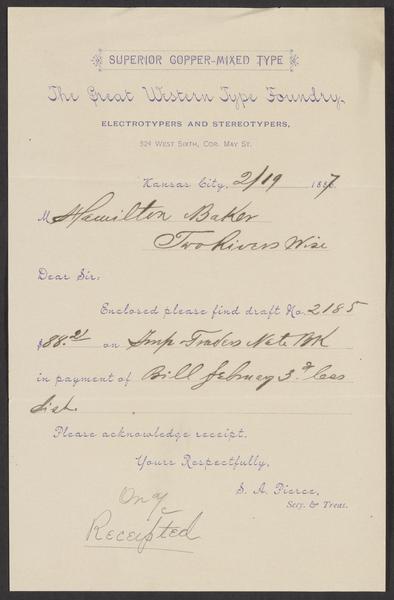 SUPERIOR COPPER-MIXED TYPE
The Great Western Type Foundry.
ELECTROTYPERS AND STEREOTYPERS,
324 WEST SIXTH, COR. MAY ST.
Kansas City, 2/19 1887
M Hamilton Baker
Two Rivers Wise
Dear Sir:
Enclosed please find draft No. 2185
$88.21 on Imp Traders Natl BK
in payment of Bill February 3d less
dist.
Please acknowledge receipt.
Yours Respectfully,
S. A. Pierce,
Secy. & Treas.
Receipted